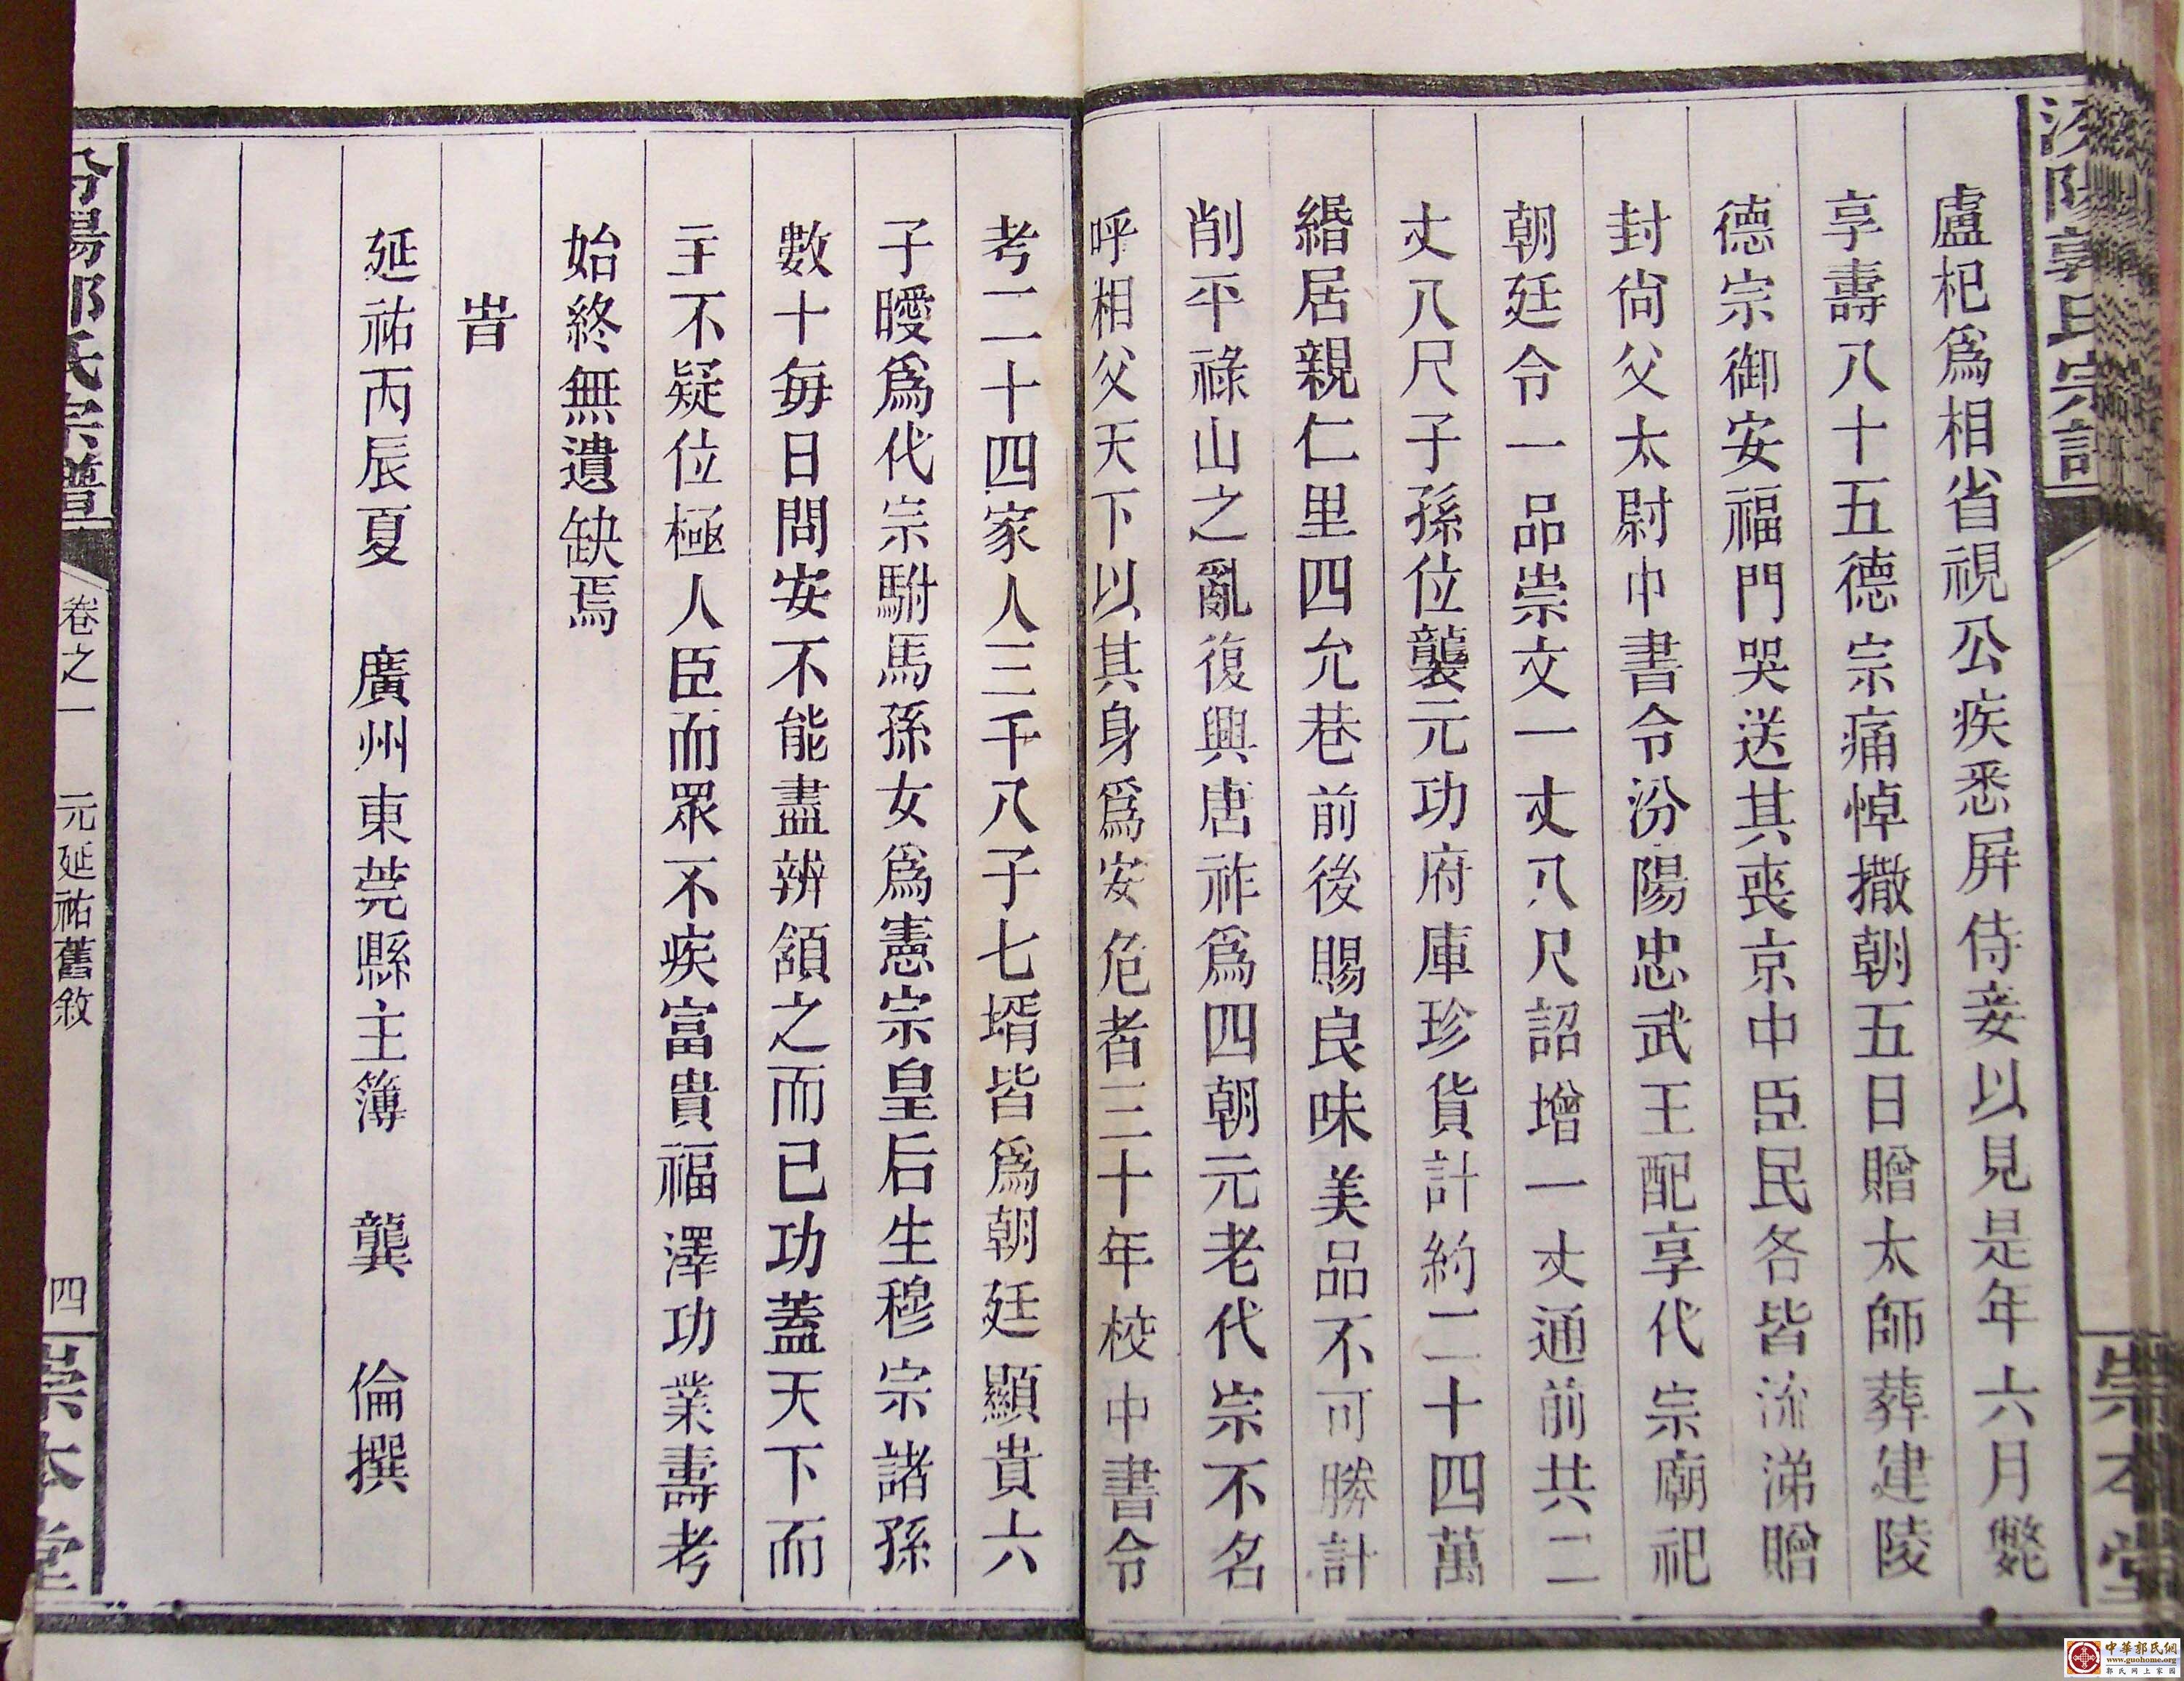 汾陽郭氏宗譜
崇本堂
盧杞爲相省視公疾悉屛侍妾以見是年六月甍
享壽八十五德宗痛悼撒朝五日贈太師葬建陵
德宗御安福門哭送其喪京中臣民各皆流涕贈
封尙父太尉中書令汾陽忠武王配享代宗廟祀
朝廷令一品崇文一丈八尺詔增一丈通前共二
丈八尺子孫位襲元功府庫珍貨計約二十四萬
緡居親仁里四允巷前後賜良味美品不可勝計
削平祿山之亂復興唐祚爲四朝元老代宗不名
呼相父天下以其身爲安危者三十年校中書令
考二十四家人三千八子七壻皆爲朝廷顯貴六
子曖爲代宗駙馬孫女爲憲宗皇后生穆宗諸孫
數十每日問安不能盡辨頷之而已功蓋天下而
主不疑位極人臣而眾不疾富貴福澤功業壽考
始終無遺缺焉
旹
延祐丙辰夏 廣州東莞縣主簿 龔 倫撰
汾陽郭氏宗譜 卷之一 元延祐舊敘 四 崇本堂
中華郭氏網
www.guohome.org
郭氏网上家園